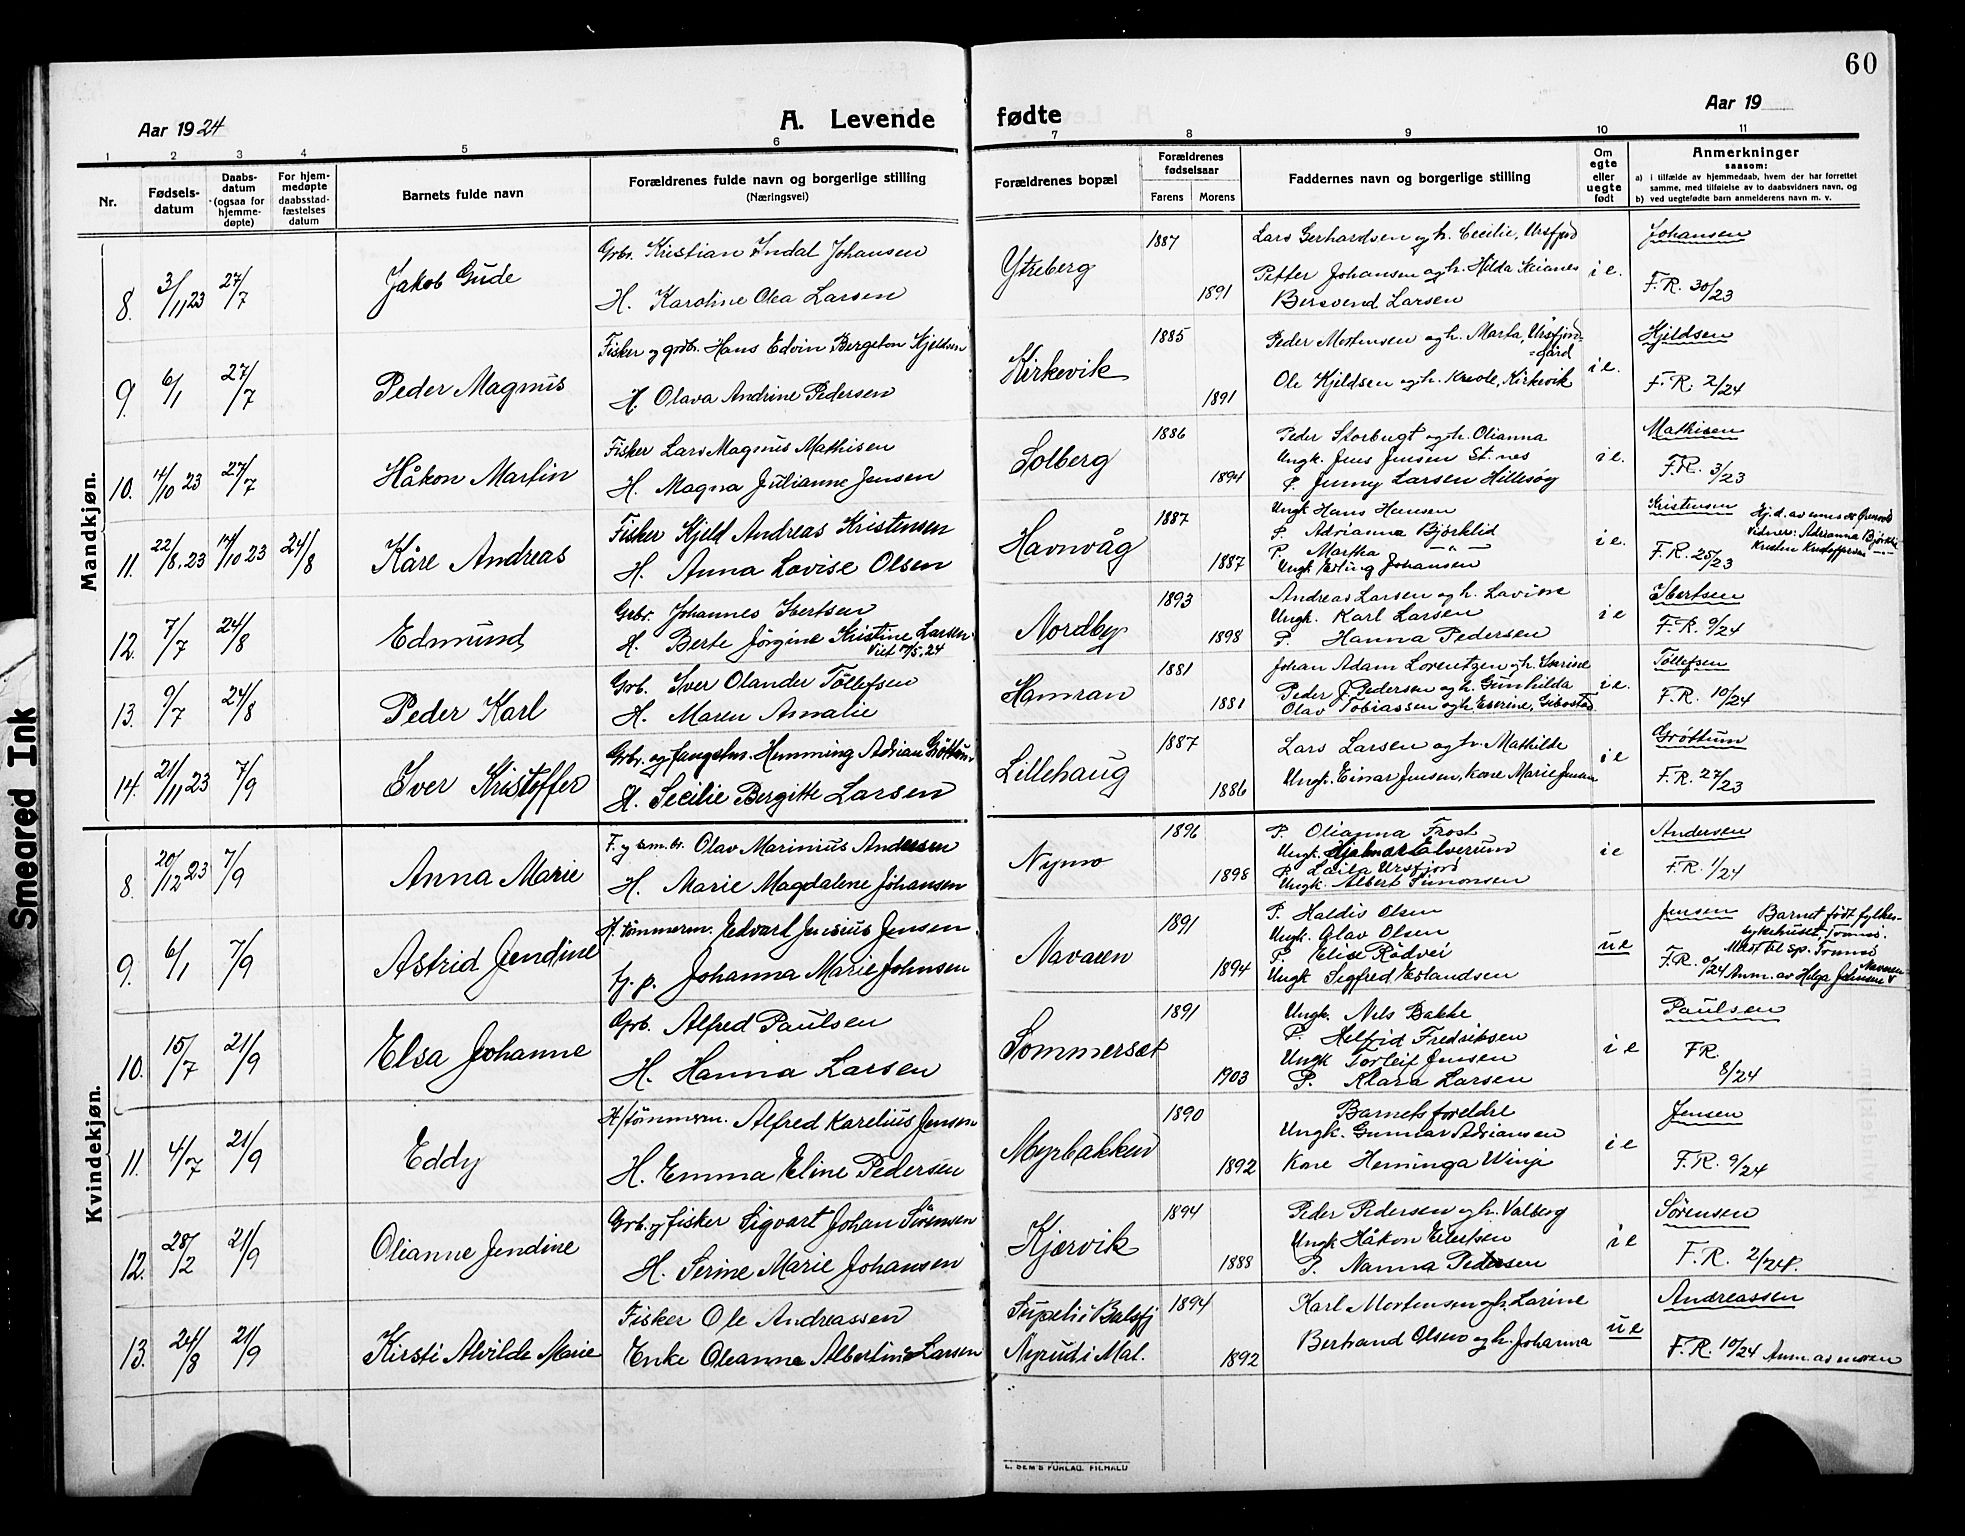 60
Aar 1924
A. Levende fødte
Aar 19
1 2 3 4 5 6 7 8 9 10 11
Nr.
Fødsels-
datum
Daabs-
datum
(ogsaa for
hjemme-
døpte)
For hjem-
medøpte
daabsstad-
fæstelses
datum
Barnets fulde navn
Forældrenes fulde navn og borgerlige stilling
(Næringsvei)
Forældrenes bopæl
Forældrenes
fødselsaar
Farens Morens
Faddernes navn og borgerlig stilling
Om
egte
eller
uegte
født
Anmerkninger
saasom:
a) i tilfælde av hjemmedaab, hvem der har forrettet
samme, med tilføielse av to daabsvidners navn, og
b) ved uegtefødte barn anmelderens navn m. v.
Mandkjøn.
8. 3/11 23 27/7 Jakob Gude
Grbr. Kristian Indal Johansen
H. Karoline Olea Larsen
Ytreberg 1887 1891
Lars Gerhardsen og h. Cecilie, Ursfjord
Petter Johansen og h. Hilda
Bersvend Larsen
i e.
Johansen
F.R. 30/23
9. 6/1 27/7 Peder Magnus
Fisker og grbr. Hans Edvin Bergeton Kjeldsen
H. Olava Andrine Pedersen
Kirkevik 1885 1891
Peder Mortensen og h. Marta, Ursfjord-
=gård
Ole Kjeldsen og h. Kirkevik
i e.
Kjeldsen
F.R. 2/24
10. 14/10 23 27/7 Håkon Martin
Fisker Lars Magnus Mathisen
H. Magna Julianne Jensen
Solberg 1886 1894
Peder Storbugt og h. Olianna
Ungk. Jens Jensen St.nes
P. Jenny Larsen Hillesøy
i e.
Mathisen
F.R. 3/23
11. 22/8.23 14/10 23 24/8 Kåre Andreas
Fisker Kjeld Andreas Kristensen
H. Anna Lovise Olsen
Havnvåg 1887 1887
Ungk Hans Hansen
P. Adrianna Bjørklid
P. Martha — " —
Ungk Erling Johansen
i e.
Kristensen
F.R. 25/23
Vidner: Adrianna Bjørklid
Kristen Kristoffersen
12. 7/7 24/8 Edmund
Grbr. Johannes Ibertsen
H. Berte Jørgine Kristine Larsen
Nordby 1893 1898
Andreas Larsen og h. Lavine
Ungk. Karl Larsen
P. Hanna Pedersen
i e
Ibertsen
F.R. 9/24
13. 9/7 24/8 Peder Karl
Grb. Iver Olander Tollefsen
H. Maren Amalie
Hamran 1881 1881
Johan Adam Lorentzen og h.
Peder J Pedersen og h. Gunhilda
Olav Tobiassen og h Eserine, Gibostad
i e.
Tollefsen
F.R. 10/24
14. 21/11 23 7/9 Iver Kristoffer
Grbr. og fangstm. Hemming Adrian Grøttum
H. Secilie Bergitte Larsen
Lillehaug 1887 1886
Lars Larsen og h. Mathilde
Ungk. Einar Jensen, Kone Marie Jensen
i e
Grøttum
F.R. 27/23
Kvindekjøn.
8. 20/12 23 7/9 Anna Marie
F. og sm.br. Olav Marinius Andersen
H. Marie Magdalene Johansen
Nymo 1896 1898
P. Olianna Frost
Ungk. Hjalmar Elverum
P. Laila Ursfjord
Ungk. Albert Simonsen
i e
Andersen
F.R. 1/24
9. 6/1 7/9 Astrid Jendine
H. tømmerm. Edvart Jensius Jensen
tj. p. Johanna Marie Johnsen
Navaren 1891 1894
P. Haldis Olsen
Ungk. Olav Olsen
P. Elise Rødvei
Ungk Sigfred Erlandsen
u e
Jensen Barnet født fylkes-
sykehuset, Tromsø.
Medt til sp. Tromsø
F.R. 9/24 Anm. av Helga Johnsen
10. 15/7 21/9 Elsa Johanne
Grb. Alfred Paulsen
H. Hanna Larsen
Sommerset 1891 1903
Ungk. Nils Bakke
P. Helfrid Fredriksen
Ungk Torleif Jensen
P. Klara Larsen
i e
Paulsen
FR.
8/24
11. 4/7 21/9 Eddy
H/tømmerm. Alfred Karelius Jensen
H. Emma Eline Pedersen
Myrbakken 1890 1892
Barnets foreldre
Ungk. Gunnar Adriansen
Kone Heminga Winje
i e
Jensen
F.R. 9/24
12. 28/2 21/9 Olianne Jendine
Grb. og fisker Sigvart Johan Sørensen
H. Serine Marie Johansen
Kjærvik 1894 1888
Peder Pedersen og h. Valberg
Ungk Håkon Eilertsen
P. Nanna Pedersen
i e
Sørensen
F.R. 2/24.
13. 24/8 21/9 Kirsti Alvilde Marie
Fisker Ole Andreassen
Enke Oleanna Albertine Larsen
i Balsfj 1894
Nyrud i Mal. 1892
Karl Mortensen og h. Larine
Bertrand Olsen og h. Johanna
u e
Andreassen
F.R. 10/24 Anm. av moren
E. SEM'S FORLAG, FR.HALD
Smeared Ink